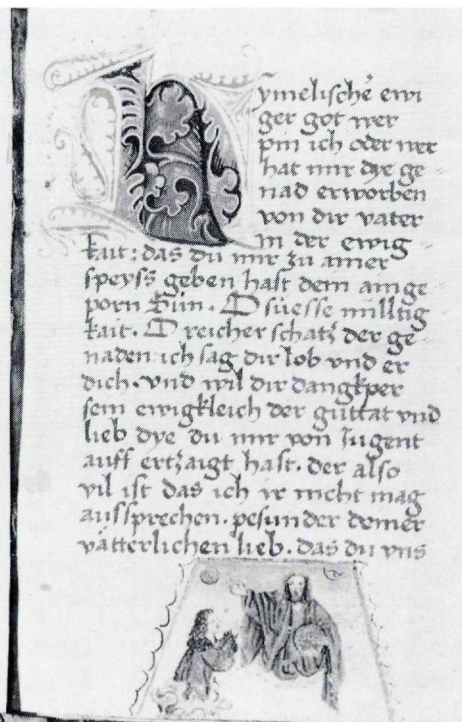 Hymelischer ewi
ger got wer
pin ich oder wer
hat mir dye ge
nad erworben
von dir vater
in der ewig
kait: das du mir zu ainer
speyss geben hast dem ainge
porn Sun. O süesse milltig
kait. O reicher schatz der ge
naden: ich sag dir lob vnd er
dich. vnd wil dir dangkper
sein ewigkleich der güttat vnd
lieb dye du mir von Jugent
auff ertzaigt hast. der also
vil ist das ich ir nicht mag
aussprechen. pesunder deiner
vätterlichen lieb. das du vns